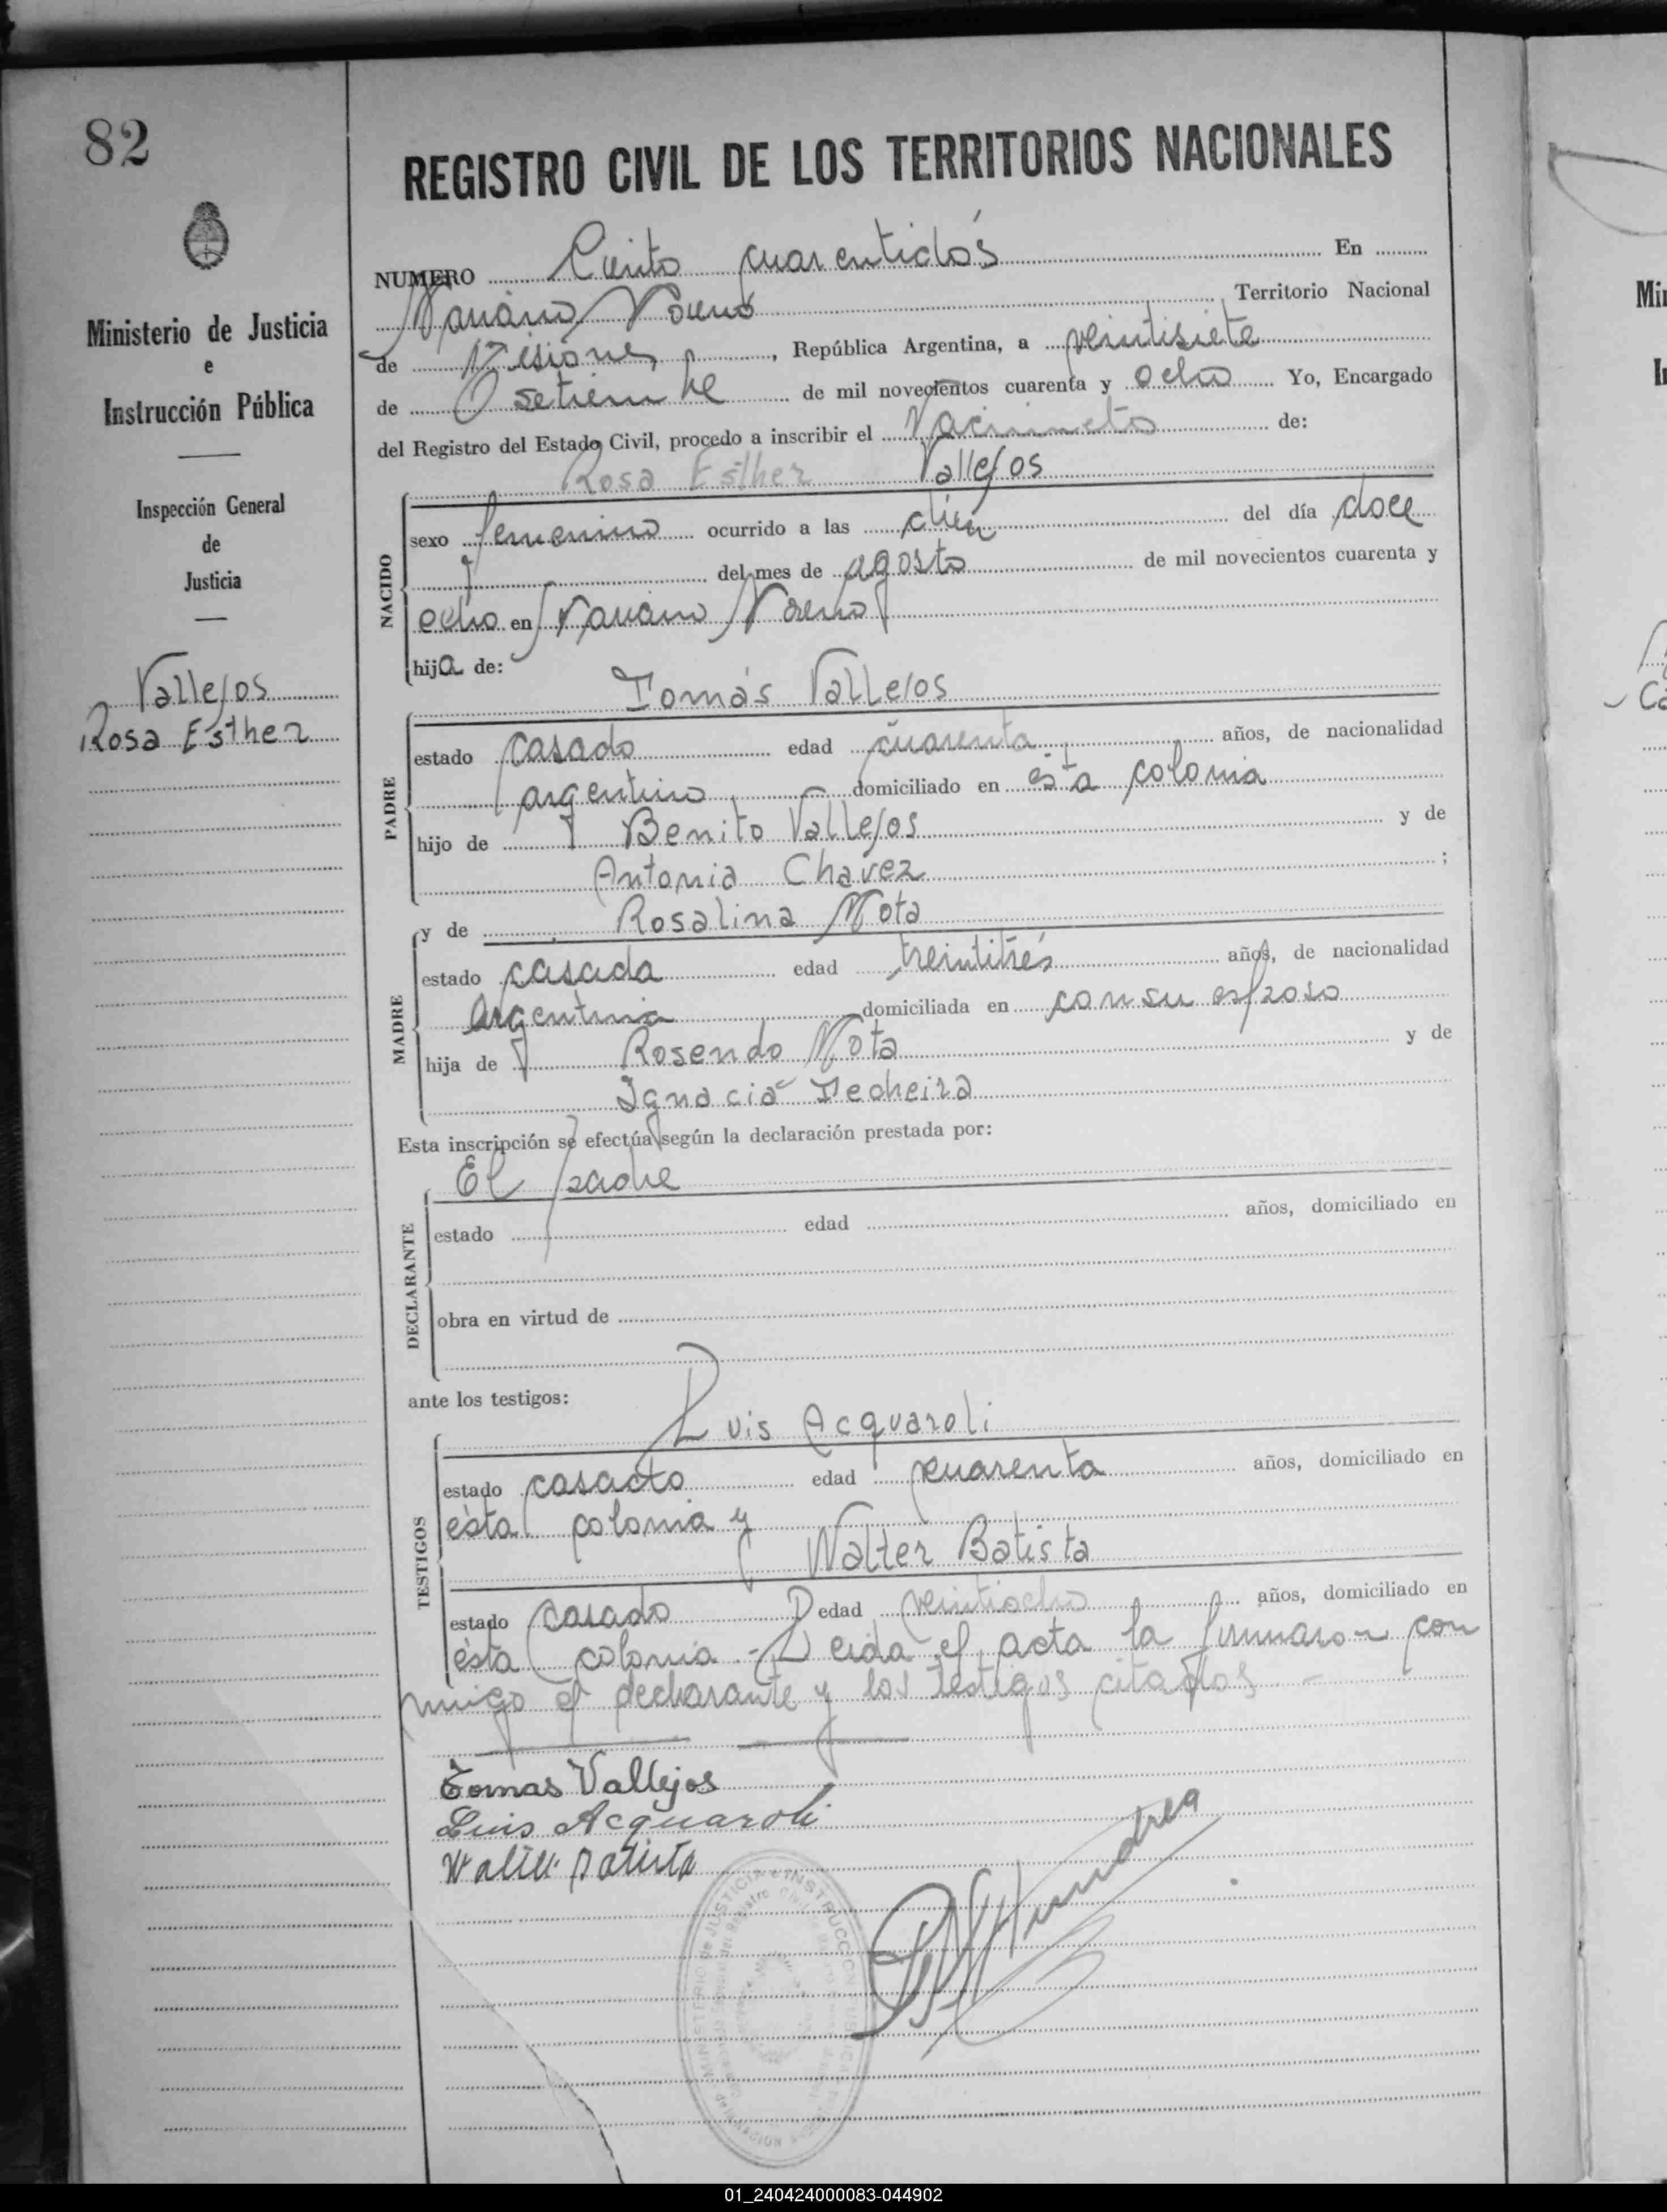 82
REGISTRO CIVIL DE LOS TERRITORIOS NACIONALES
NUMERO Ciento cuarentidós En
Mariano Moreno Territorio Nacional
de Misiones, República Argentina, a veintisiete
de setiembre de mil novecientos cuarenta y ocho Yo, Encargado
del Registro del Estado Civil, procedo a inscribir el Nacimiento de:
Rosa Esther Vallejos
Ministerio de Justicia
e
Instrucción Pública
Inspección General
de
Justicia
Vallejos
Rosa Esther
NACIDO
sexo femenino ocurrido a las diez del día doce
del mes de agosto de mil novecientos cuarenta y
ocho en Mariano Moreno
hija de:
Tomás Vallejos
PADRE
estado casado edad cuarenta años, de nacionalidad
argentino domiciliado en ésta colonia
hijo de Benito Vallejos y de
Antonia Chavez ;
y de Rosalina Mota
MADRE
estado casada edad treintitrés años, de nacionalidad
argentina domiciliada en con su esposo
hija de Rosendo Mota y de
Ignacia
Esta inscripción se efectúa según la declaración prestada por:
El padre
DECLARANTE
estado edad años, domiciliado en
obra en virtud de
ante los testigos:
Luis Acquaroli
TESTIGOS
estado casado edad cuarenta años, domiciliado en
ésta colonia y
Walter Batista
estado casado edad veintiocho años, domiciliado en
ésta colonia.- Leida el acta la firmaron con
migo el declarante y los testigos citados.-
Tomas Vallejos
Luis Acquaroli
Walter Batista
MINISTERIO de JUSTICIA e INSTRUCCION PUBLICA
01_240424000083-044902